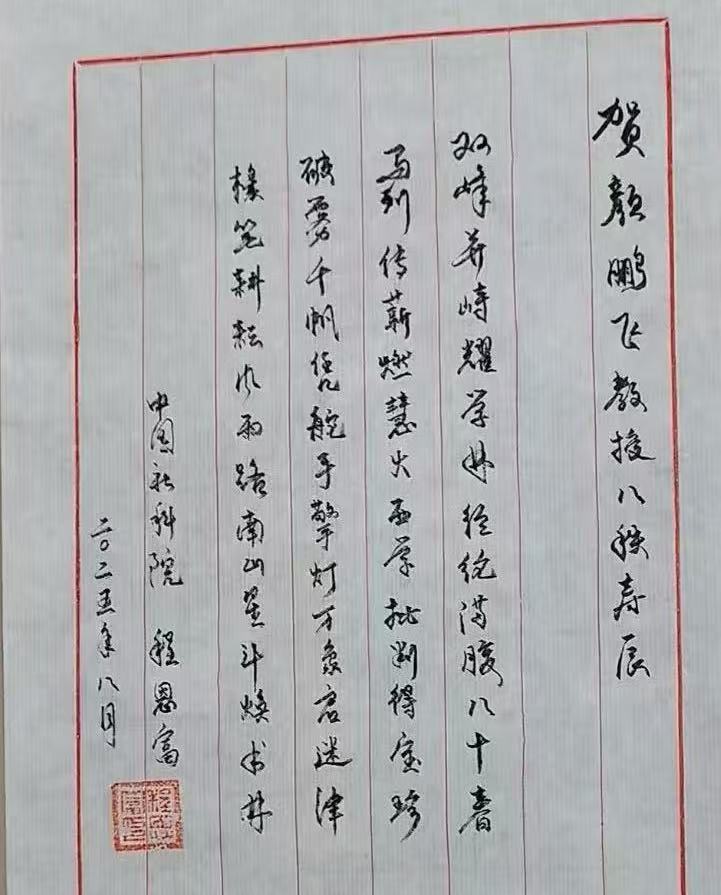 贺颜鹏飞教授八秩寿辰
双峰并峙耀学林经纶满腹八十春
马列传薪燃慧火西学批判得宝珍
破雾千帆凭舵手擎灯万象启迷津
椽笔耕耘风雨路南山星斗焕书林
中国社科院 程恩富
二〇二五年八月